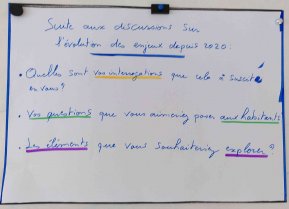 Suite aux discussions sur
l'évolution des enjeux depuis 2020.
• Quelles sont vos interrogations que cela a suscité
en vous ?
• Vos questions que vous aimeriez poser aux habitants
• Les éléments que vous souhaiteriez explorer ?